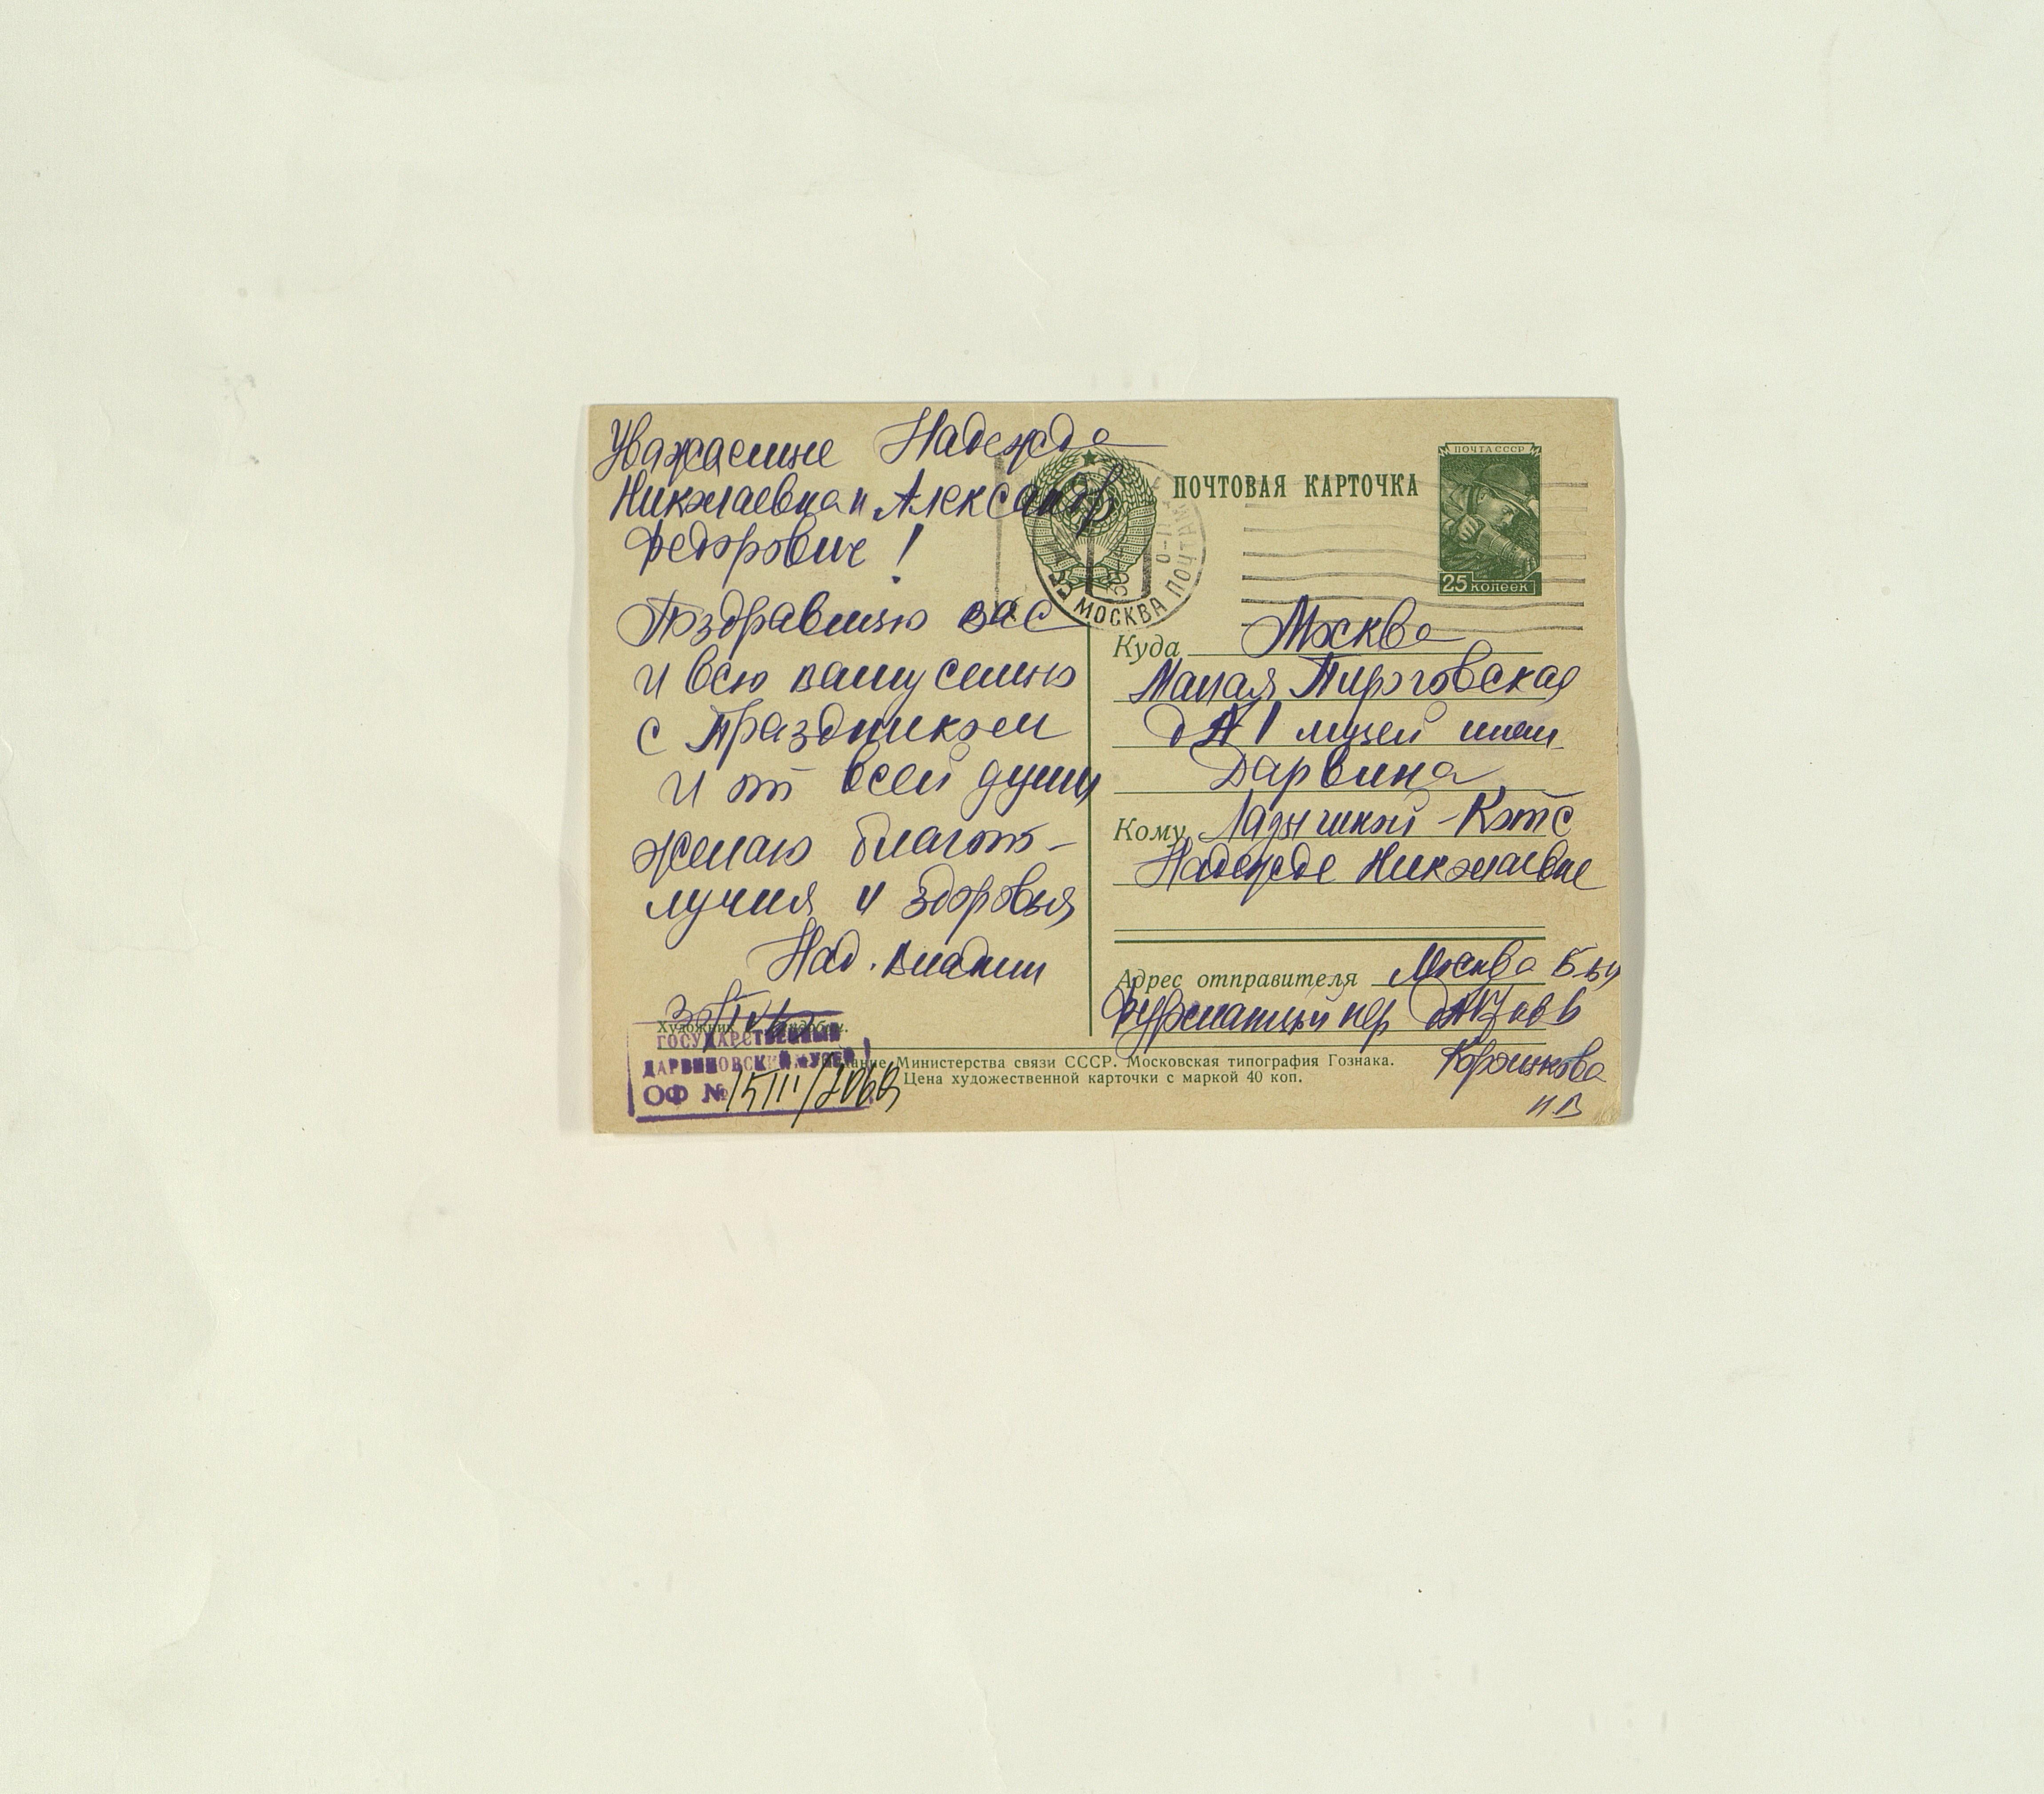 Уважаемые Надежда
Николаевна и Александр
Федорович!
Поздравляю вас
и всю вашу семью
с Праздником
и от всей души
желаю благопо-
лучия и здоровья
Над. Владим
30/IV
Художник
ГОСУДАРСТВЕННЫЙ
ДАРВИНОВСКИЙ МУЗЕЙ
ОФ №
ПОЧТОВАЯ КАРТОЧКА
ПОЧТА СССР
25 копеек
МОСКВА ПОЧТАМТ
Куда Москва
Малая Пироговская
д № 1 музей имен.
Дарвина
Кому Ладыгиной-Котс
Надежде Николаевне
Адрес отправителя Москва
Фурманный пер
Н.В
Издание Министерства связи СССР. Московская типография Гознака.
Цена художественной карточки с маркой 40 коп.